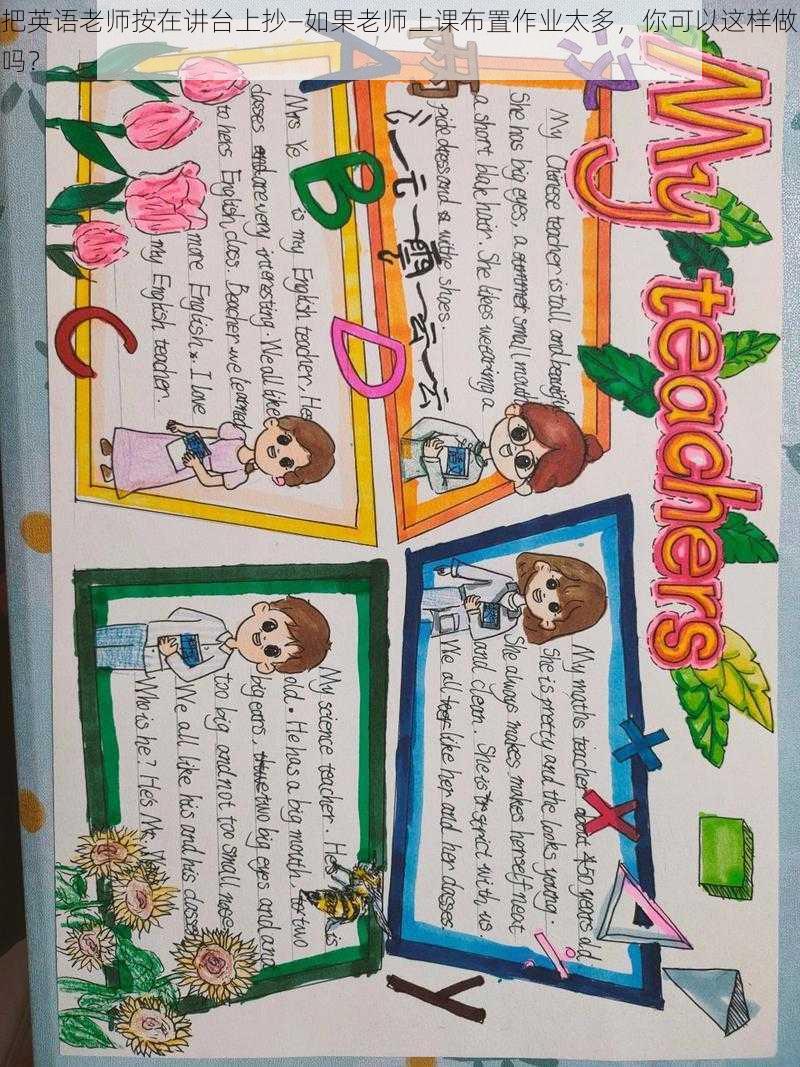 把英语老师按在讲台上抄—如果老师上课布置作业太多，你可以这样做
吗？
My teachers
汉
两
A
B
C
D
My Chinese teacher is tall and beautiful
She has big eyes, a small mouth
a short blak hair. She likes wearing a
pink dress and a withe shoes.
一
元
一
雲
一
云
一
云
Mrs Ye is my English teacher. Her
classes are very interesting. We all like
to hers English class. Beacher we learned
more English. I love
my English teacher.
My maths teacher about 45 years old
She is pretty and the looks young.
She always makes herself neat
and clean. She is strict with us
We all like her and her classes.
My science teacher. He is
old. He has a big mouth, two
big ears, two big eyes and and
too big and not too small nose
We all like his and his classes
Who is he? He's Mr.
x
x
÷
y